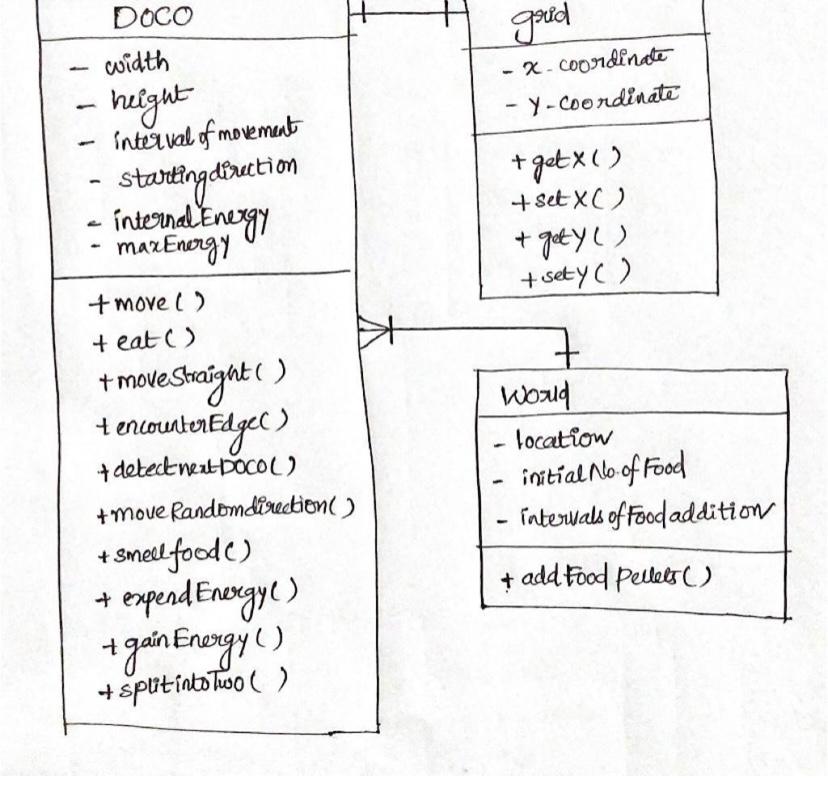 DOCO
- width
- height
- interval of movement
- starting direction
- internal Energy
- maxEnergy
+ move ( )
+ eat ( )
+ moveStraight ( )
+ encounterEdge( )
+ detectnextDOCO( )
+ move Randomdirection( )
+ smellfood( )
+ expend Energy( )
+ gain Energy( )
+ splitintoTwo( )
grid
- x-coordinate
- y-coordinate
+ getX( )
+ setX( )
+ getY( )
+ setY( )
World
- location
- initial No. of Food
- intervals of Food addition
+ add Food Pellets( )